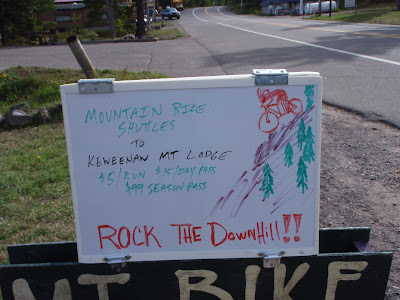 MOUNTAIN BIKE
SHUTTLES
TO
KEWEENAW MT LODGE
$5/RUN $15/DAY PASS
$99 SEASON PASS
ROCK THE DOWNHILL!!
MT BIKE